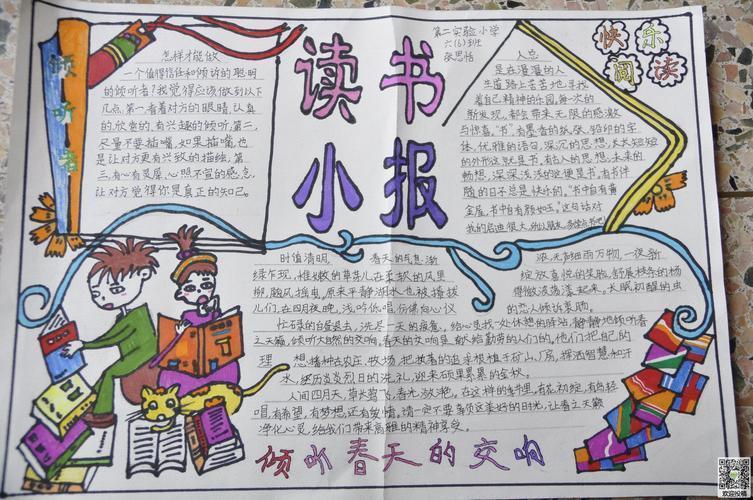 读书
小报
倾听者
怎样才能做
一个值得信任和倾诉的聪明
的倾听者？我觉得应该做到以下
几点：第一，看着对方的眼睛，认真
的，欣赏的，有兴趣的倾听，第二，
尽量不要插嘴，如果插嘴，也
是让对方更有兴致的描绘，第
三，有心有灵犀，心照不宣的感念，
让对方觉得你是真正的知己。
第二实验小学
六(6)班
张思恬
快乐
阅读
人总
是在漫漫的人
生道路上苦苦地寻找
着自己精神的乐园。每一次的
新发现，都会带来无限的感激
与惊喜。"书"，有墨香的纸张，铅印的字
体，优雅的语句，深沉的思想，长长短短
的外形这就是书，有古人的思想，未来的
畅想，深深浅浅的这便是书，有书伴
随的日子总是快乐的。"书中自有黄
金屋，书中自有颜如玉。"这句话对
我的启迪很大，
时值清明，春天的气息渐
绿乍现，
柳，
儿们，在四月夜晚，浅吟低唱，
忙碌的白昼退去，洗尽一天的疲惫，给心灵找一处休憩的驿站，静静地倾听春
之天籁，倾听大自然的交响。春天的交响是献给勤劳的人们的，他们把自己的
理想播种在农庄、牧场，把执著的追求根植于矿山、厂房，挥洒智慧和汗
水，经历炎炎烈日的洗礼，迎来硕果累累的金秋。
人间四月天，草长莺飞，春光放艳。在这样的季节里，有花初绽，有鸟轻
唱，有希望，有梦想还有爱情。请一定不要辜负这美好的时光，让春之天籁
净化心灵，给我们带来高雅的精神享受。
浓，
绽放喜悦的笑脸，舒展枝条的杨
的恋人倾诉衷肠。
倾听春天的交响
欢迎投稿